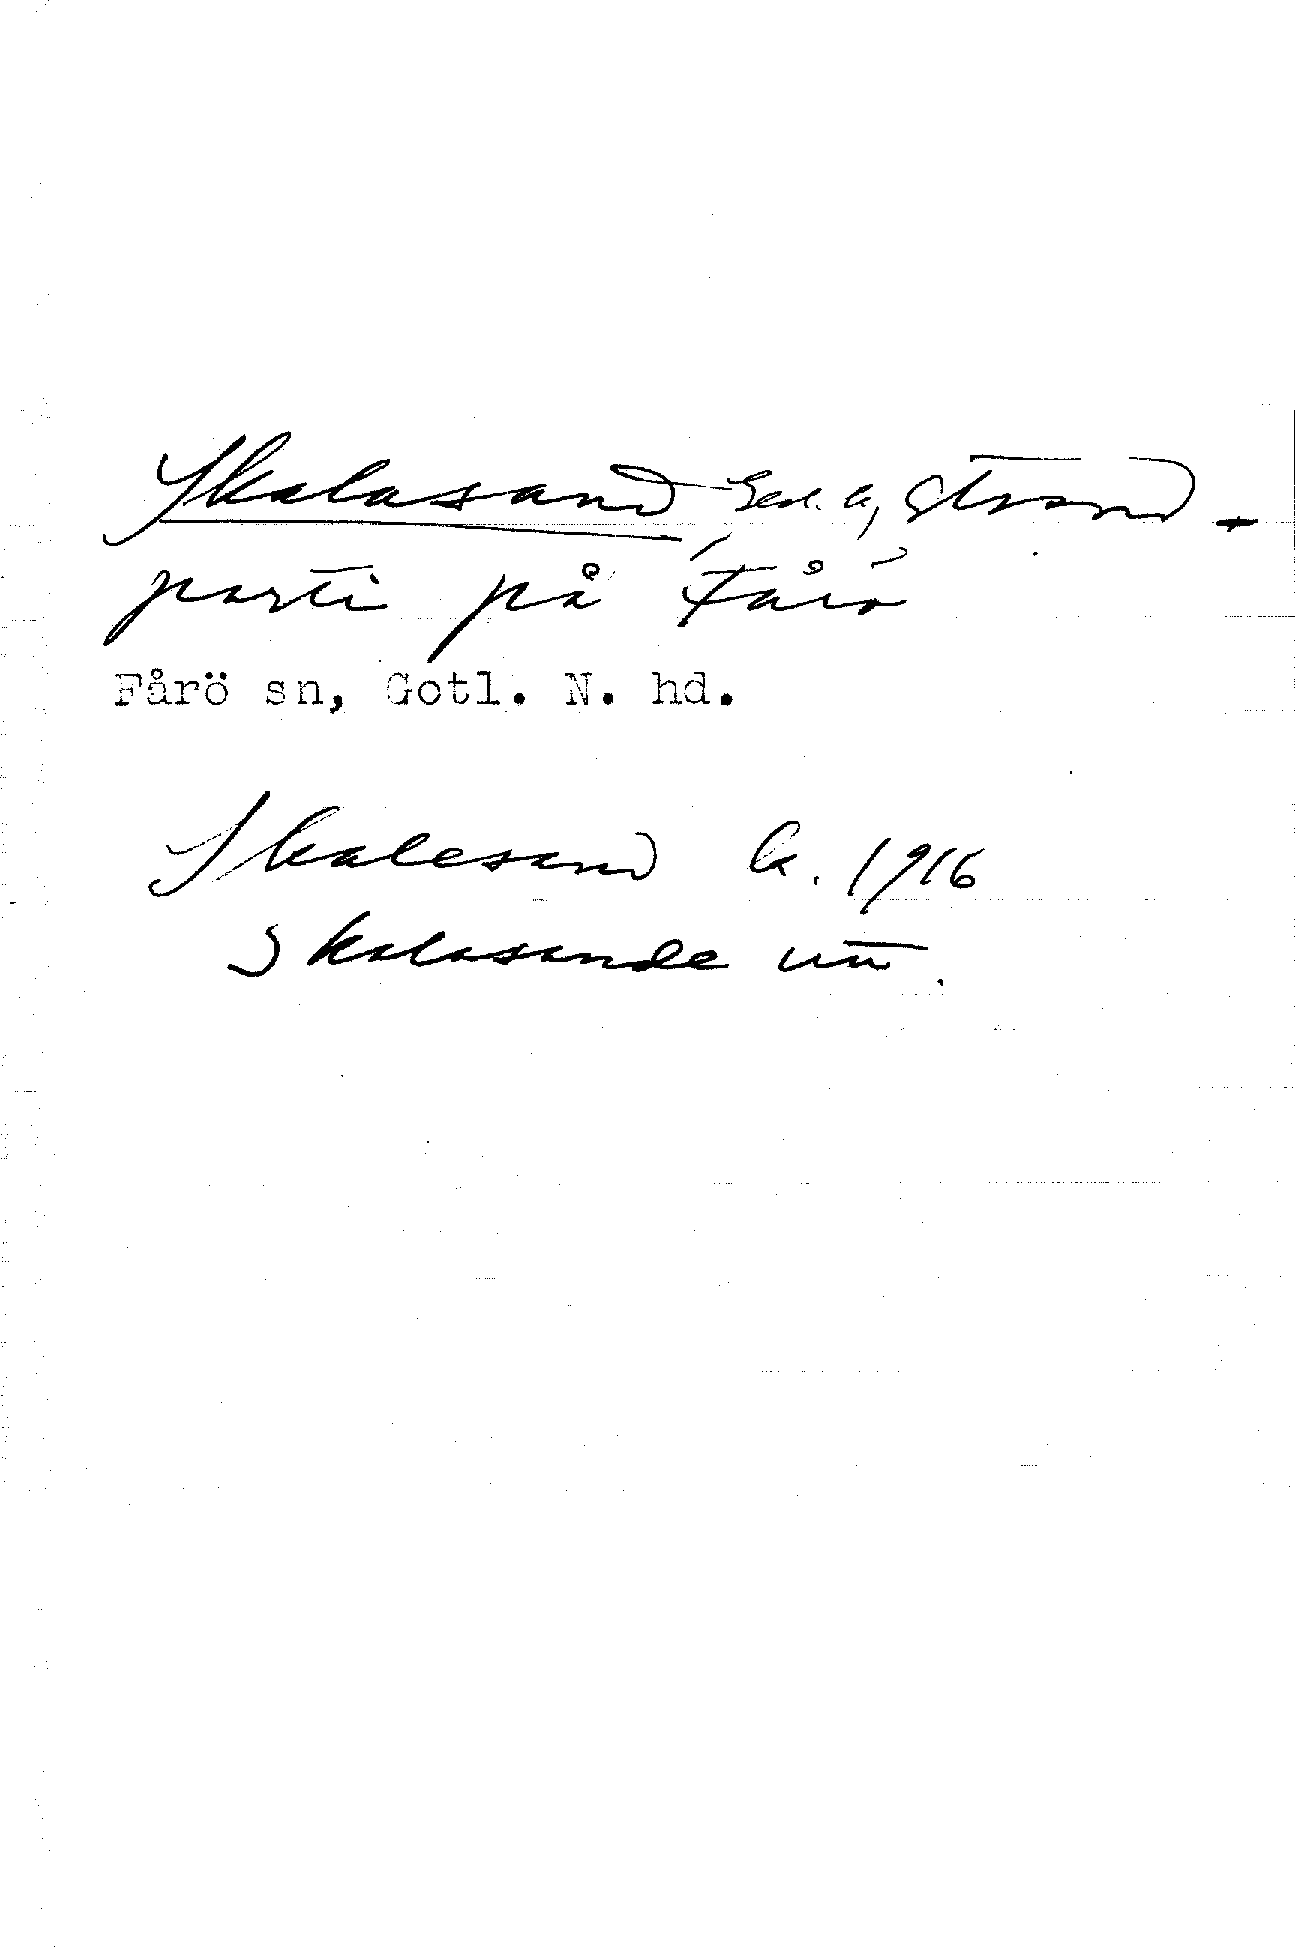 Skalasand Gen. k, strand-
parti på Fårö
Fårö sn, Gotl. N. hd.
Skalesand k. 1916
Skalasande utt.